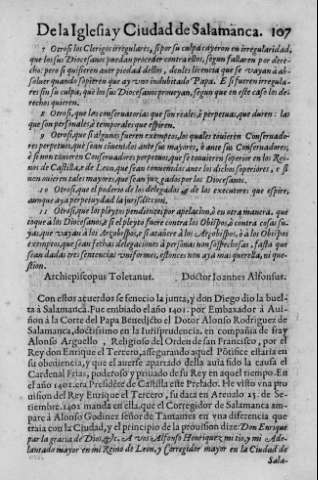 De la Iglesia y Ciudad de Salamanca. 107
7 Otrosi los Clerigos irregulares, si por su culpa cayeron en irregularidad,
que los sus Diocesanos puedan proceder contra ellos, segun fallaren por dere-
cho: pero si quisieren auer piedad dellos, denles licencia que se vayan à ab-
soluer quando sopieren que ay vno indubitado Papa. E si fueren irregula-
res sin su culpa, què los sus Diocesanos prouean, segun que en este caso los de-
rechos quieren.
8 Otrosi, que las conseruatorias que son reales, è perpetuas, que duren: las
que son personales, è temporales que espiren.
9 Otrosi, que si algunos fueren exemptos, los quales touieren Conseruado-
res perpetuos, que sean conuenidos ante sus mayores, ò ante sus Conseruadores;
è si non touieren Conseruadores perpetuos, que se touieren superior en los Rei-
nos de Castilla, è de Leon, que sean conuenidos ante los dichos superiores, e si
non ouieren tales mayores, que sean juzgados por los Diocesanos.
10 Otrosi, que el poderio de los delegados è de los executores que espire,
aunque aya perpetuydad la jurisdicion.
11 Otrosi, que los pleytos pendientes por apelacion, ò en otra manera. que
toque a los Diocesanos, è si el pleyto fuere contra los Obispos, ò contra cosas su-
yas, que vayan à los Arçobispos, è si atañere à los Arçobispos, è à los Obispos
exemptos, que sean fechas delegaciones à personas non sospechosas, fasta que
sean dadas tres sentencias vniformes, estonces non aya mas querella, ni que-
stion.
Archiepiscopus Toletanus. Doctor Ioannes Alfonsus.
Con estos acuerdos se fenecio la junta, y don Diego dio la buel-
ta à Salamanca. Fue embiado el año 1401. por Embaxador à Aui-
ñon à la Corte del Papa Benedicto el Dotor Alonso Rodriguez de
Salamanca, doctissimo en la Iurisprudencia, en compañia de fray
Alonso Arguello, Religioso del Orden de san Francisco, por el
Rey don Enrique el Tercero, assegurando aquel Põtifice estaria en
su obediencia, y que el auerse apartado della auia sido la causa el
Cardenal Frias, poderoso y priuado de su Rey en aquel tiempo. En
el año 1402. era Presidẽte de Castilla este Prelado. He visto vna pro
uision del Rey Enrique el Tercero, su data en Areualo 15. de Se-
tiembre. 1402 manda en ella, que el Corregidor de Salamanca am-
pare à Alonso Godinez señor de Tamames en vna diferencia que
traia con la Ciudad, y el principio de la prouission dize: Don Enrique
por la gracia de Dios, &c. A vos Alfonso Henriquez mi tio, y mi Ade-
lantado mayor en mi Reino de Leon, y Corregidor mayor en la Ciudad de
Sala-